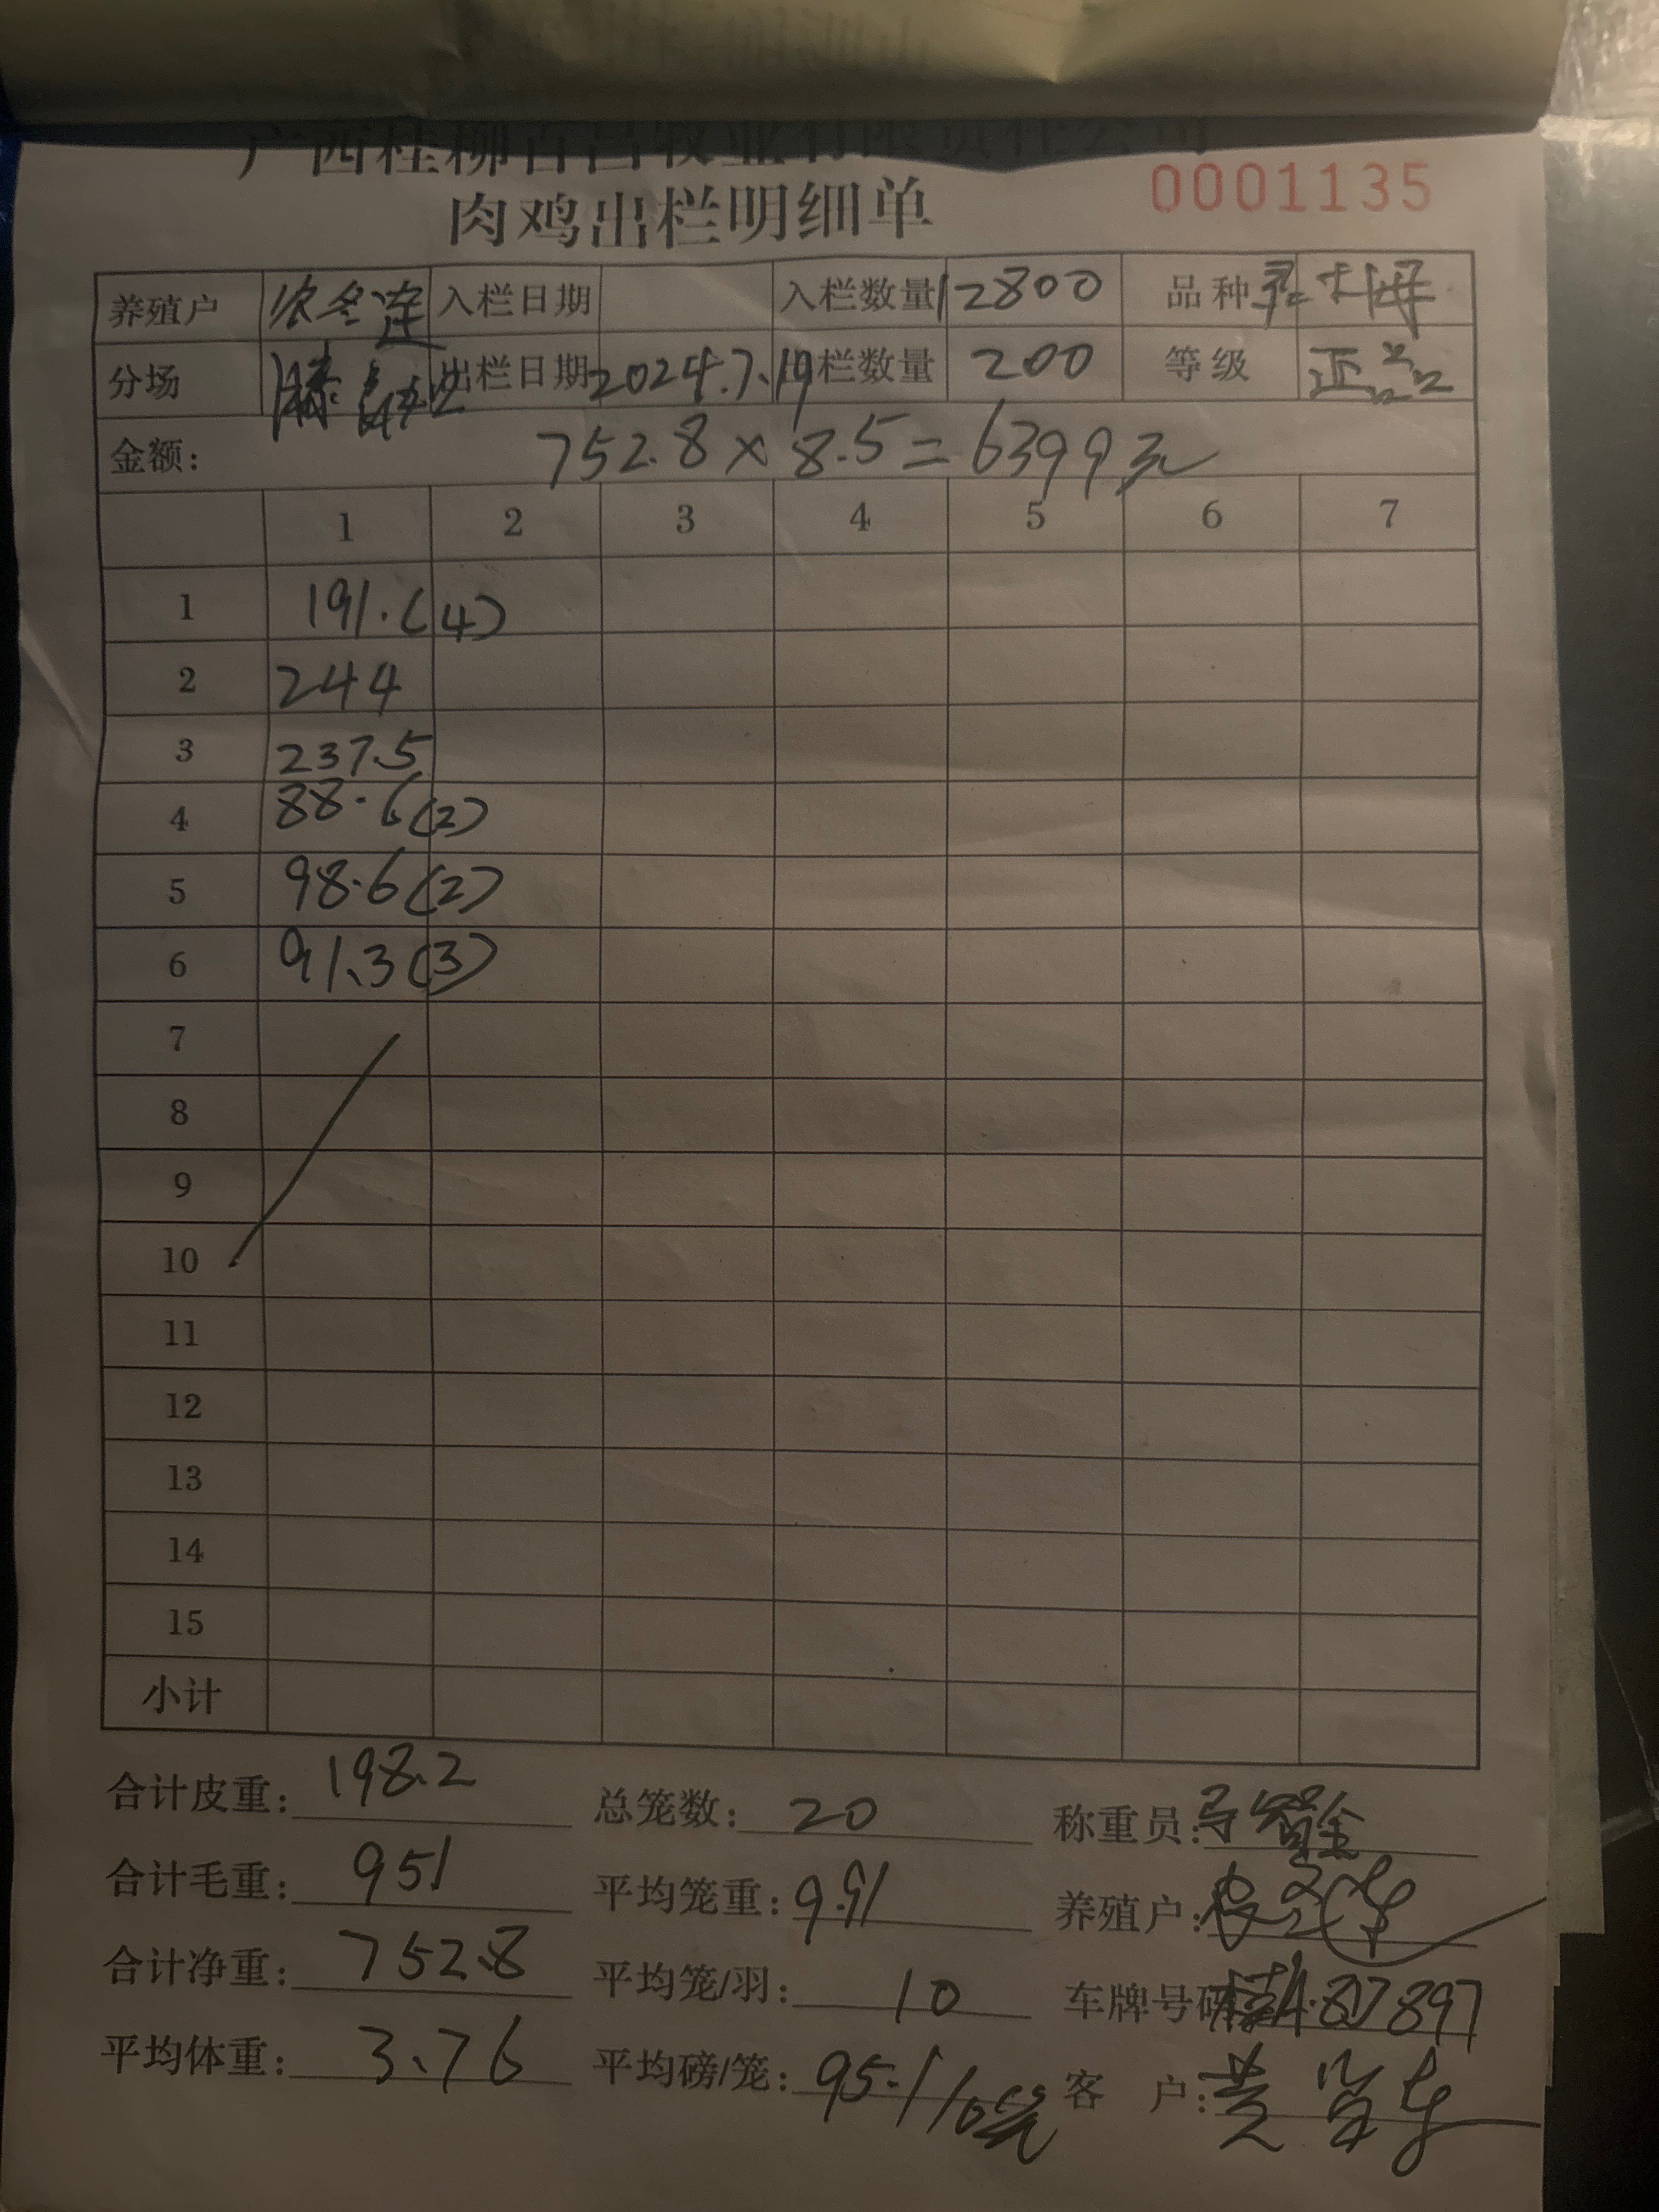 广西桂柳百昌牧业有限责任公司
肉鸡出栏明细单 0001135
养殖户 农冬连 入栏日期 入栏数量 12800 品种
分场 出栏日期 2024.7.19 出栏数量 200 等级 正品
金额： 752.8×8.5=6399元
1 2 3 4 5 6 7
1 191.(4)
2 244
3 237.5
4 88.6(2)
5 98.6(2)
6 91.3(3)
7
8
9
10
11
12
13
14
15
小计
合计皮重： 198.2 总笼数： 20 称重员：
合计毛重： 951 平均笼重： 9.91 养殖户：
合计净重： 752.8 平均笼/羽： 10 车牌号码
平均体重： 3.76 平均磅/笼： 95.1/10 客 户：